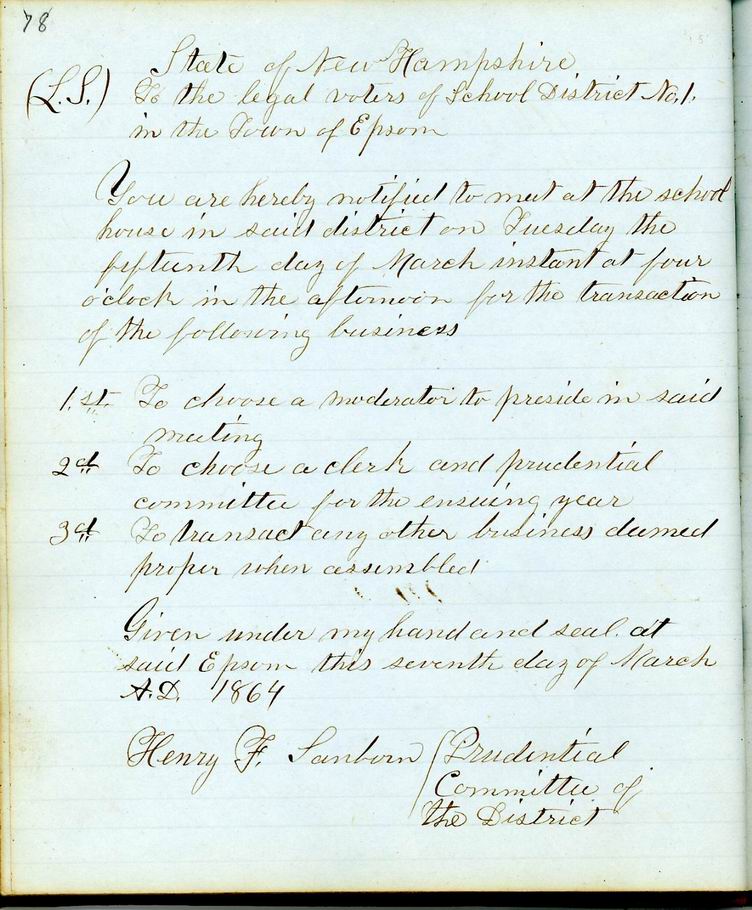 78
State of New Hampshire
(L.S.) To the legal voters of School District No. 1.
in the Town of Epsom
You are hereby notified to meet at the school
house in said district on Tuesday the
fifteenth day of March instant at four
o'clock in the afternoon for the transaction
of the following business
1.st To choose a moderator to preside in said
meeting
2d To choose a clerk and prudential
committee for the ensuing year
3d To transact any other business deemed
proper when assembled
Given under my hand and seal. at
said Epsom this seventh day of March
A.D. 1864
Henry F. Sanborn (Prudential
Committee of
the District